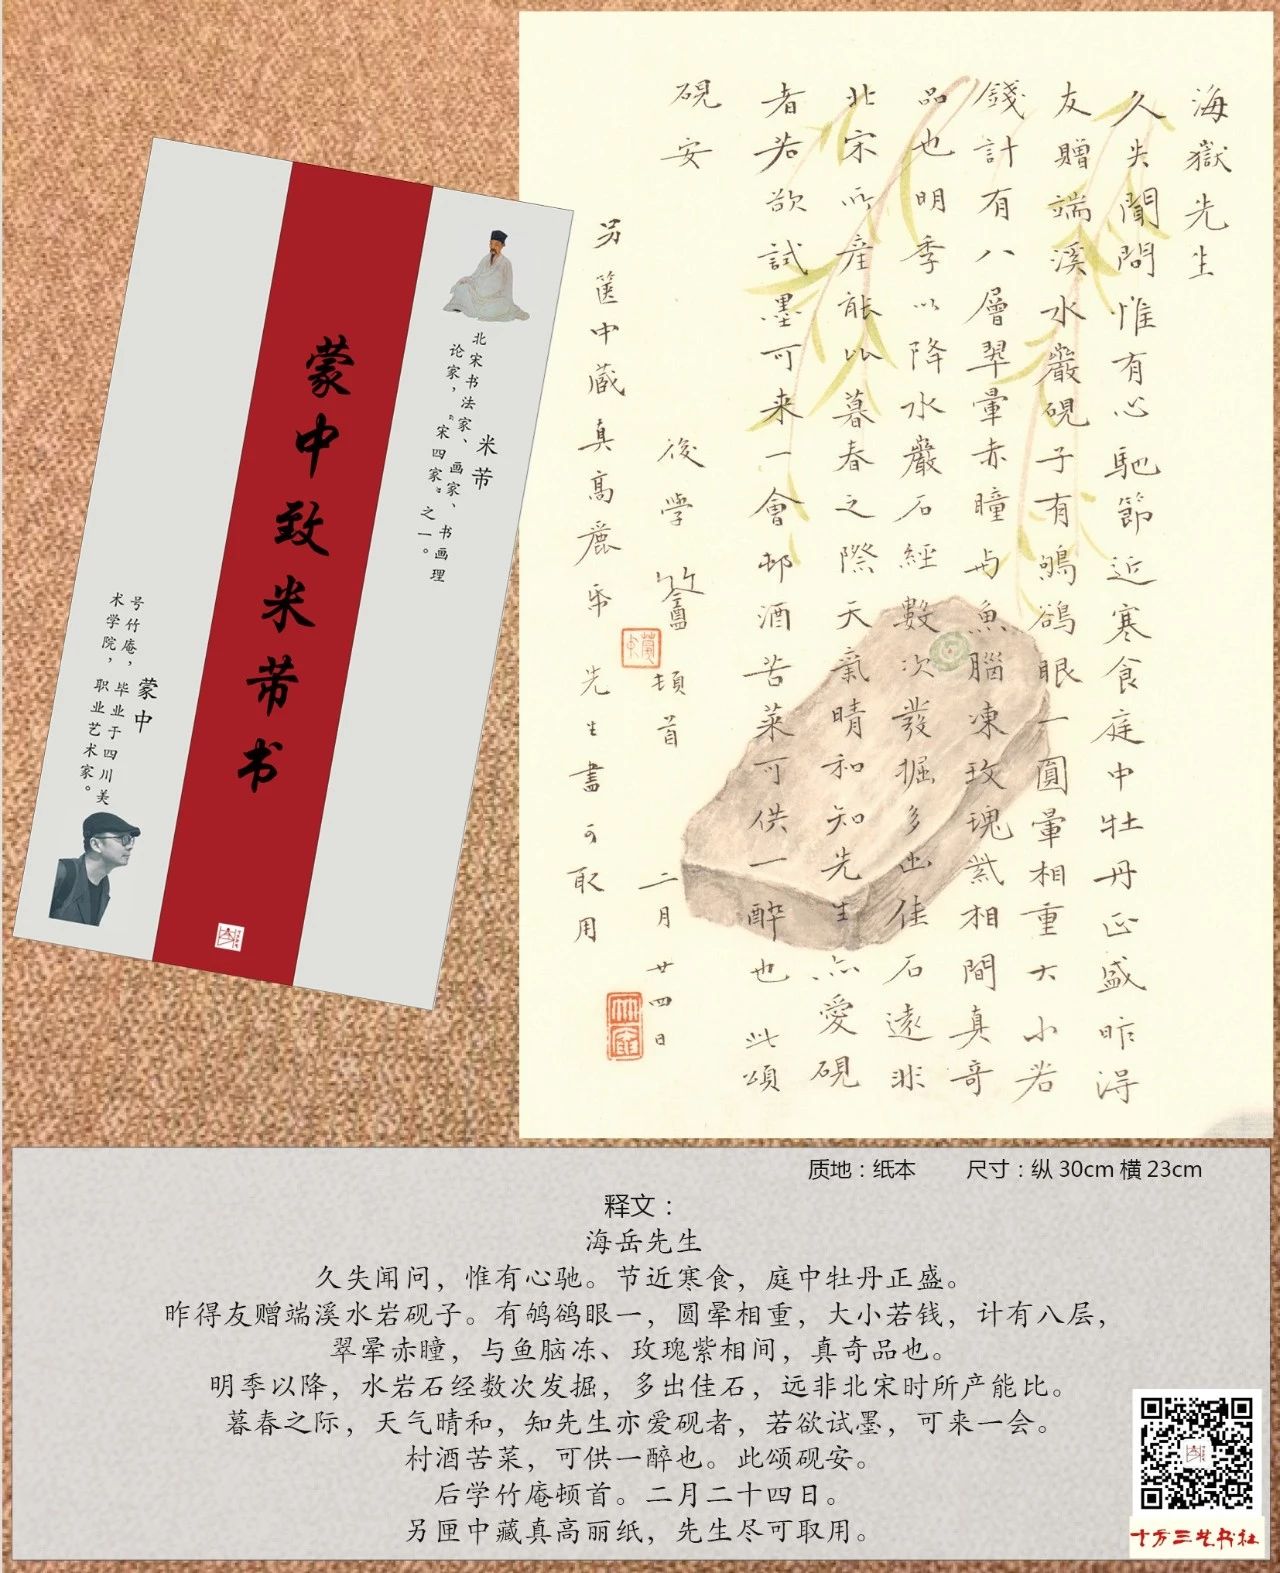 海嶽先生
久失聞問惟有心馳節近寒食庭中牡丹正盛昨得
友贈端溪水巖硯子有鴝鵒眼一圓暈相重大小若
錢計有八層翠暈赤瞳与魚腦凍玫瑰紫相間真奇
品也明季以降水巖石經數次發掘多出佳石遠非
北宋所産能比暮春之際天氣晴和知先生亦愛硯
者若欲試墨可来一會邨酒苦菜可供一醉也此頌
硯安
後學竹盦頓首
二月廿四日
另篋中藏真高麗帋先生盡可取用
蒙中
竹盦
蒙中致米芾书
米芾
北宋书法家、画家、书画理
论家，“宋四家”之一。
蒙中
号竹庵，毕业于四川美
术学院，职业艺术家。
质地：纸本 尺寸：纵30cm 横23cm
释文：
海岳先生
久失闻问，惟有心驰。节近寒食，庭中牡丹正盛。
昨得友赠端溪水岩砚子。有鸲鹆眼一，圆晕相重，大小若钱，计有八层，
翠晕赤瞳，与鱼脑冻、玫瑰紫相间，真奇品也。
明季以降，水岩石经数次发掘，多出佳石，远非北宋时所产能比。
暮春之际，天气晴和，知先生亦爱砚者，若欲试墨，可来一会。
村酒苦菜，可供一醉也。此颂砚安。
后学竹庵顿首。二月二十四日。
另匣中藏真高丽纸，先生尽可取用。
十方三艺书社